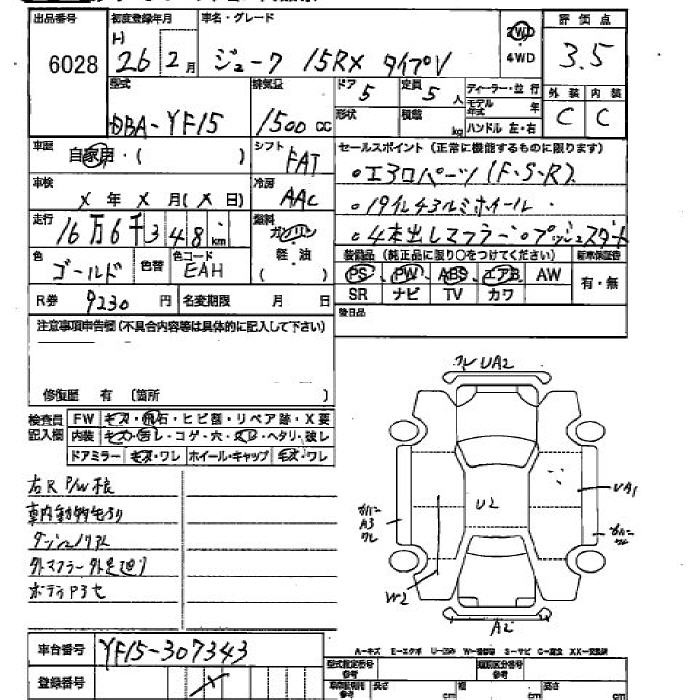 出品番号 初度登録年月 車名・グレード 2WD 評価点
6028 H 26 2月 ジューク 15RX タイプV 4WD 3.5
型式 排気量 ドア 5 定員 5人 ディーラー・並行 外装 内装
DBA-YF15 1500cc 形状 積載 kg モデル年式 年 C C
ハンドル 左・右
車歴 自家用・( ) シフト FAT セールスポイント (正常に機能するものに限ります)
・エアロパーツ(F・S・R)
車検 X年X月(X日) 冷房 AAC
・19インチアルミホイール
走行 16万6千348km 燃料 ガソリン・軽油( )
・4本出しマフラー・プッシュスタート
色 ゴールド 色替 色コード EAH 装備品 (純正品に限り○をつけてください) 新車保証書
PS PW ABS エアB AW 有・無
R券 9230円 名変期限 月 日 SR ナビ TV カワ
注意事項申告欄(不具合内容等は具体的に記入して下さい) 後日品
修復歴 有 (箇所 )
検査員記入欄 FW キズ・飛石・ヒビ割・リペア跡・X要
内装 キズ・汚レ・コゲ・穴・スレ・ヘタリ・破レ
ドアミラー キズ・ワレ ホイール・キャップ キズ・ワレ
ワレ UA2
右R P/W不良
UA1
車内動物毛あり
U2
A3
ワレ
ワレ
外マフラー外足廻り
W2
A2
車台番号 YF15-307343
A-キズ E-エクボ U-凹み
登録番号 X
型式指定番号 参考 類別区分番号 参考
長さ cm 幅 cm 高さ cm